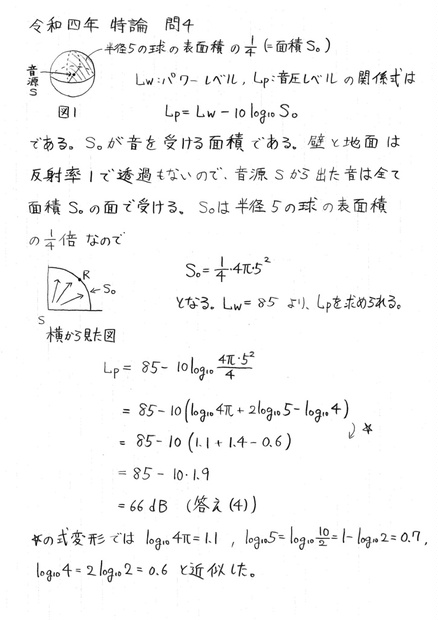 令和四年 特論 問4
半径5の球の表面積の1/4 (=面積S₀)
音源S
Lw:パワーレベル, Lp:音圧レベルの関係式は
図1
Lp = Lw − 10 log₁₀ S₀
である。S₀が音を受ける面積である。壁と地面は
反射率1で透過もないので、音源Sから出た音は全て
面積S₀の面で受ける。S₀は半径5の球の表面積
の1/4倍なので
R
S₀
S
横から見た図
S₀ = 1/4・4π・5²
となる。Lw = 85 より、Lpを求められる。
Lp = 85 − 10 log₁₀ 4π・5²/4
= 85 − 10 (log₁₀ 4π + 2log₁₀ 5 − log₁₀ 4)
☆
= 85 − 10 (1.1 + 1.4 − 0.6)
= 85 − 10・1.9
= 66 dB (答え(4))
☆の式変形では log₁₀ 4π = 1.1 , log₁₀ 5 = log₁₀ 10/2 = 1 − log₁₀ 2 = 0.7,
log₁₀ 4 = 2 log₁₀ 2 = 0.6 と近似した。